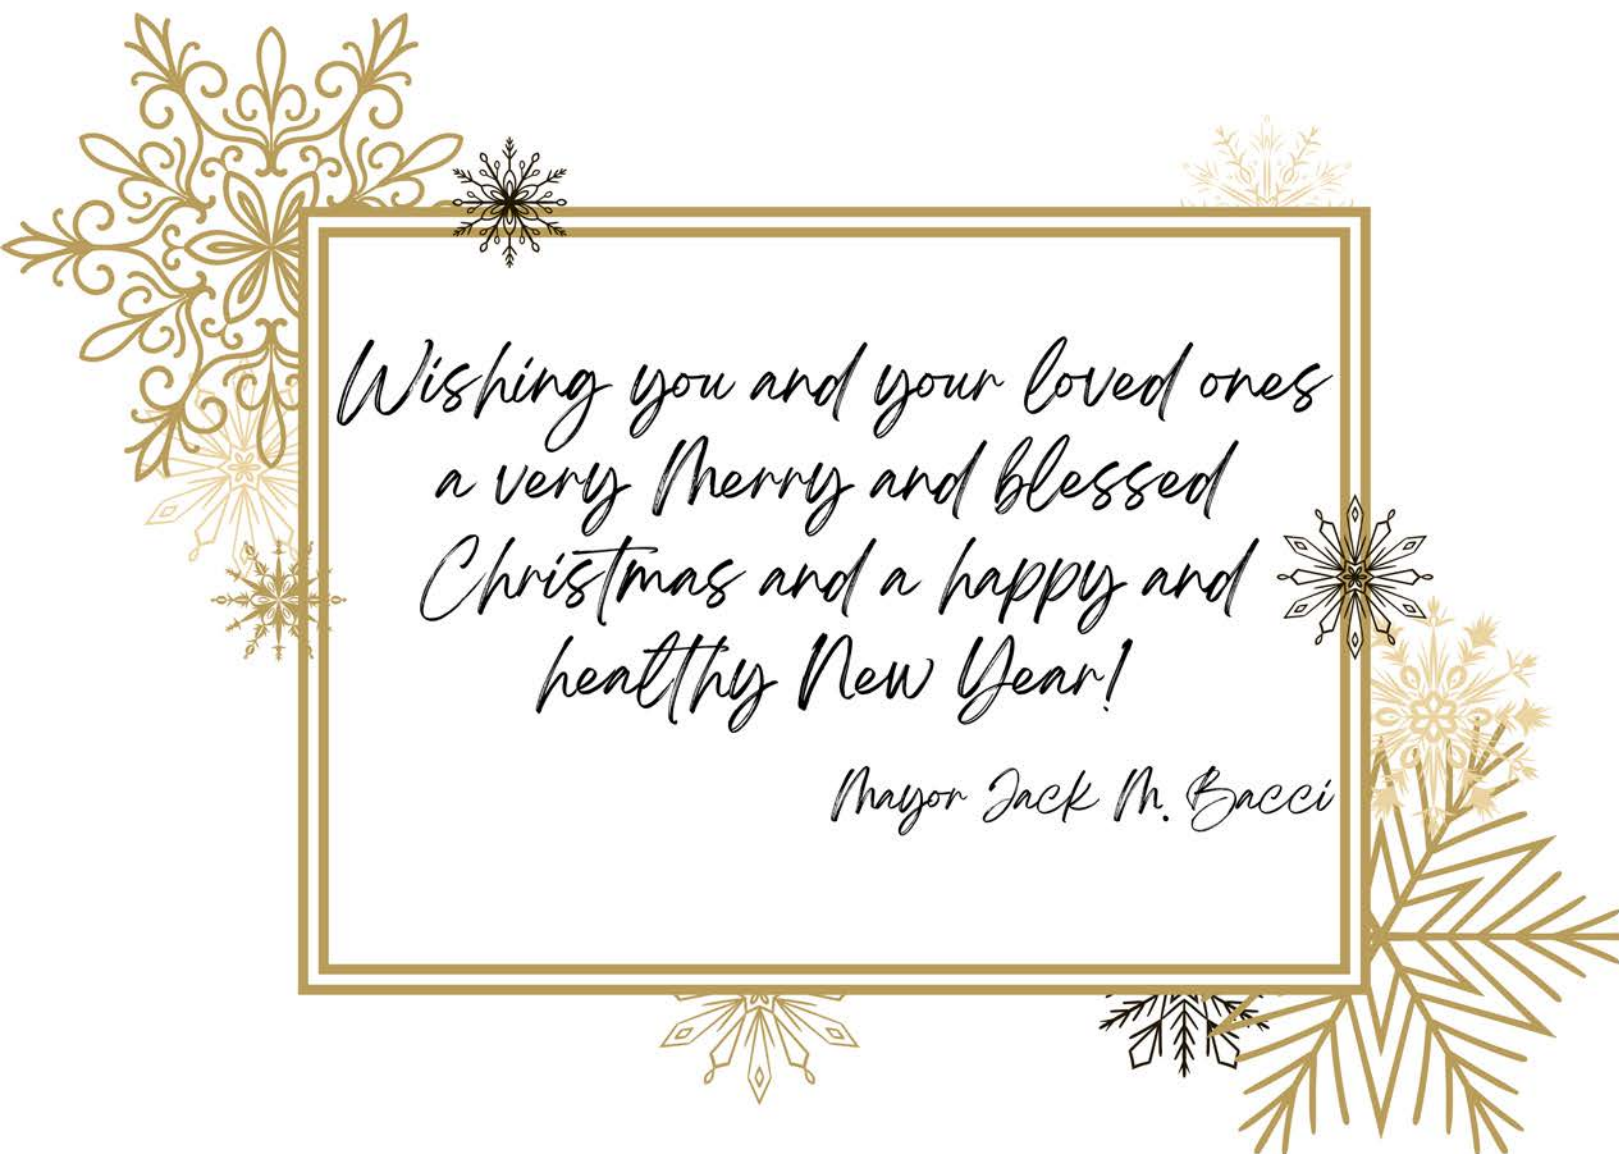 Wishing you and your loved ones
a very Merry and blessed
Christmas and a happy and
healthy New Year!
Mayor Jack M. Bacci